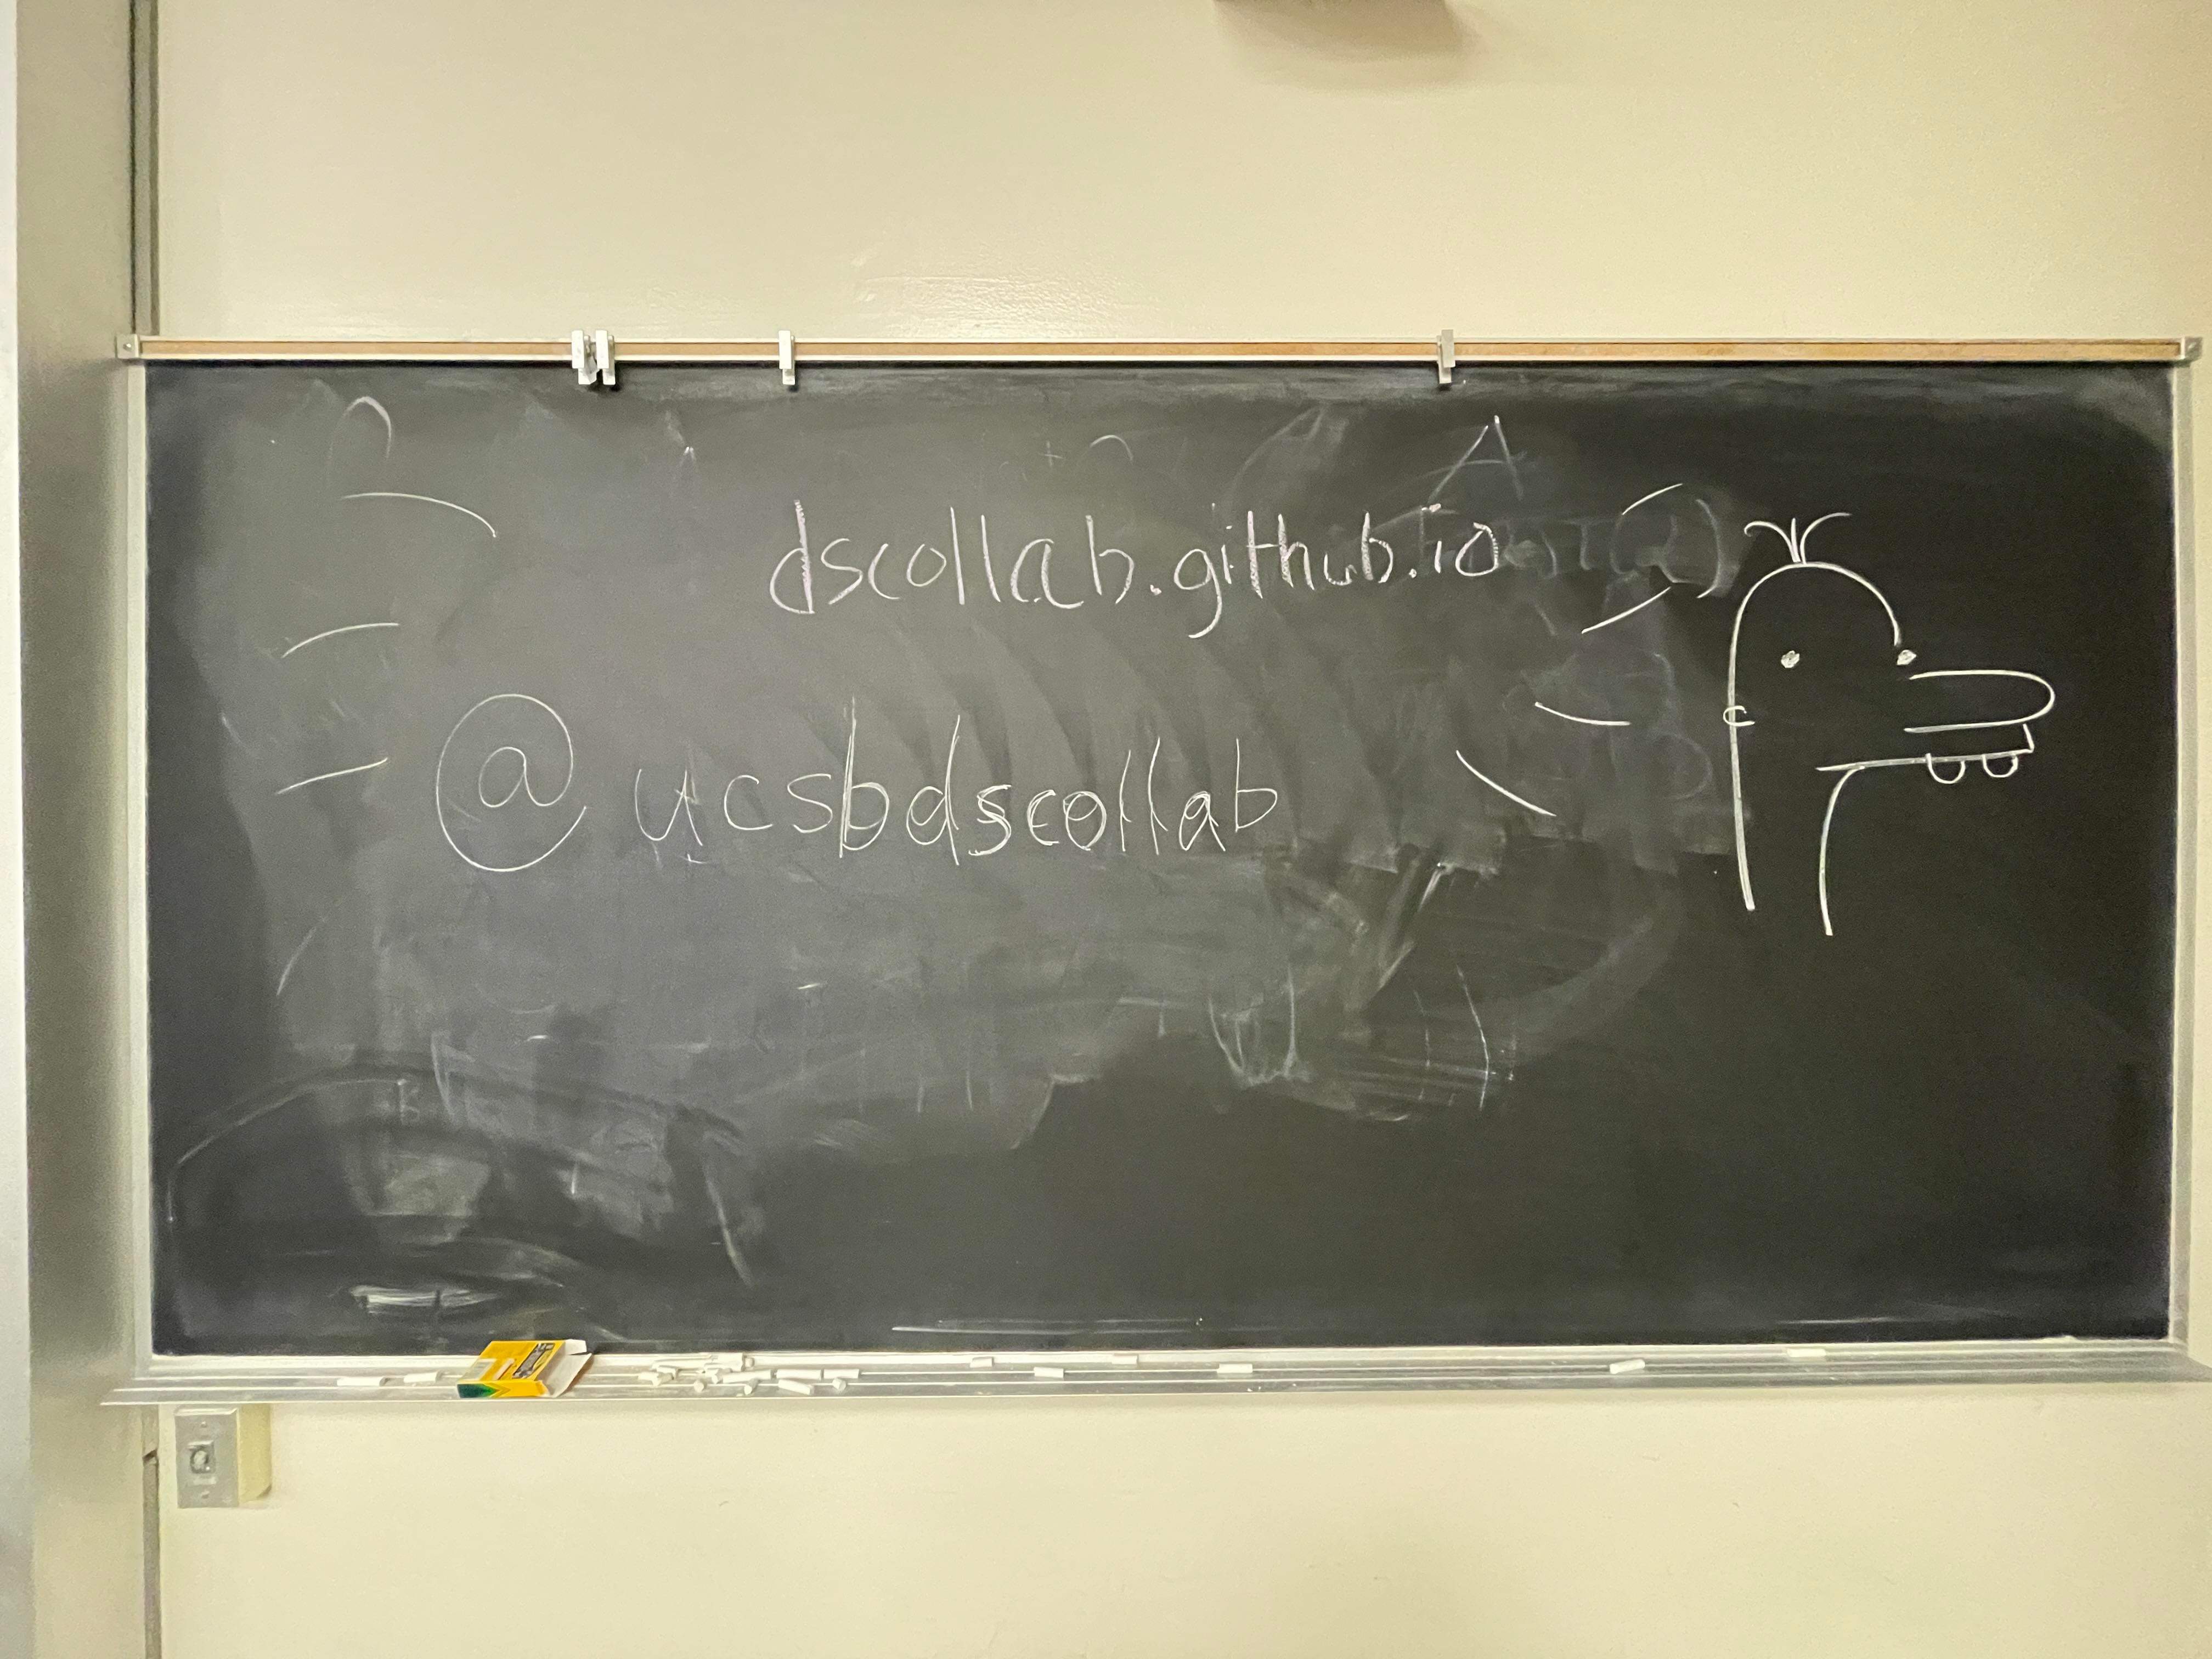 dscollab.github.io
@ucsbdscollab